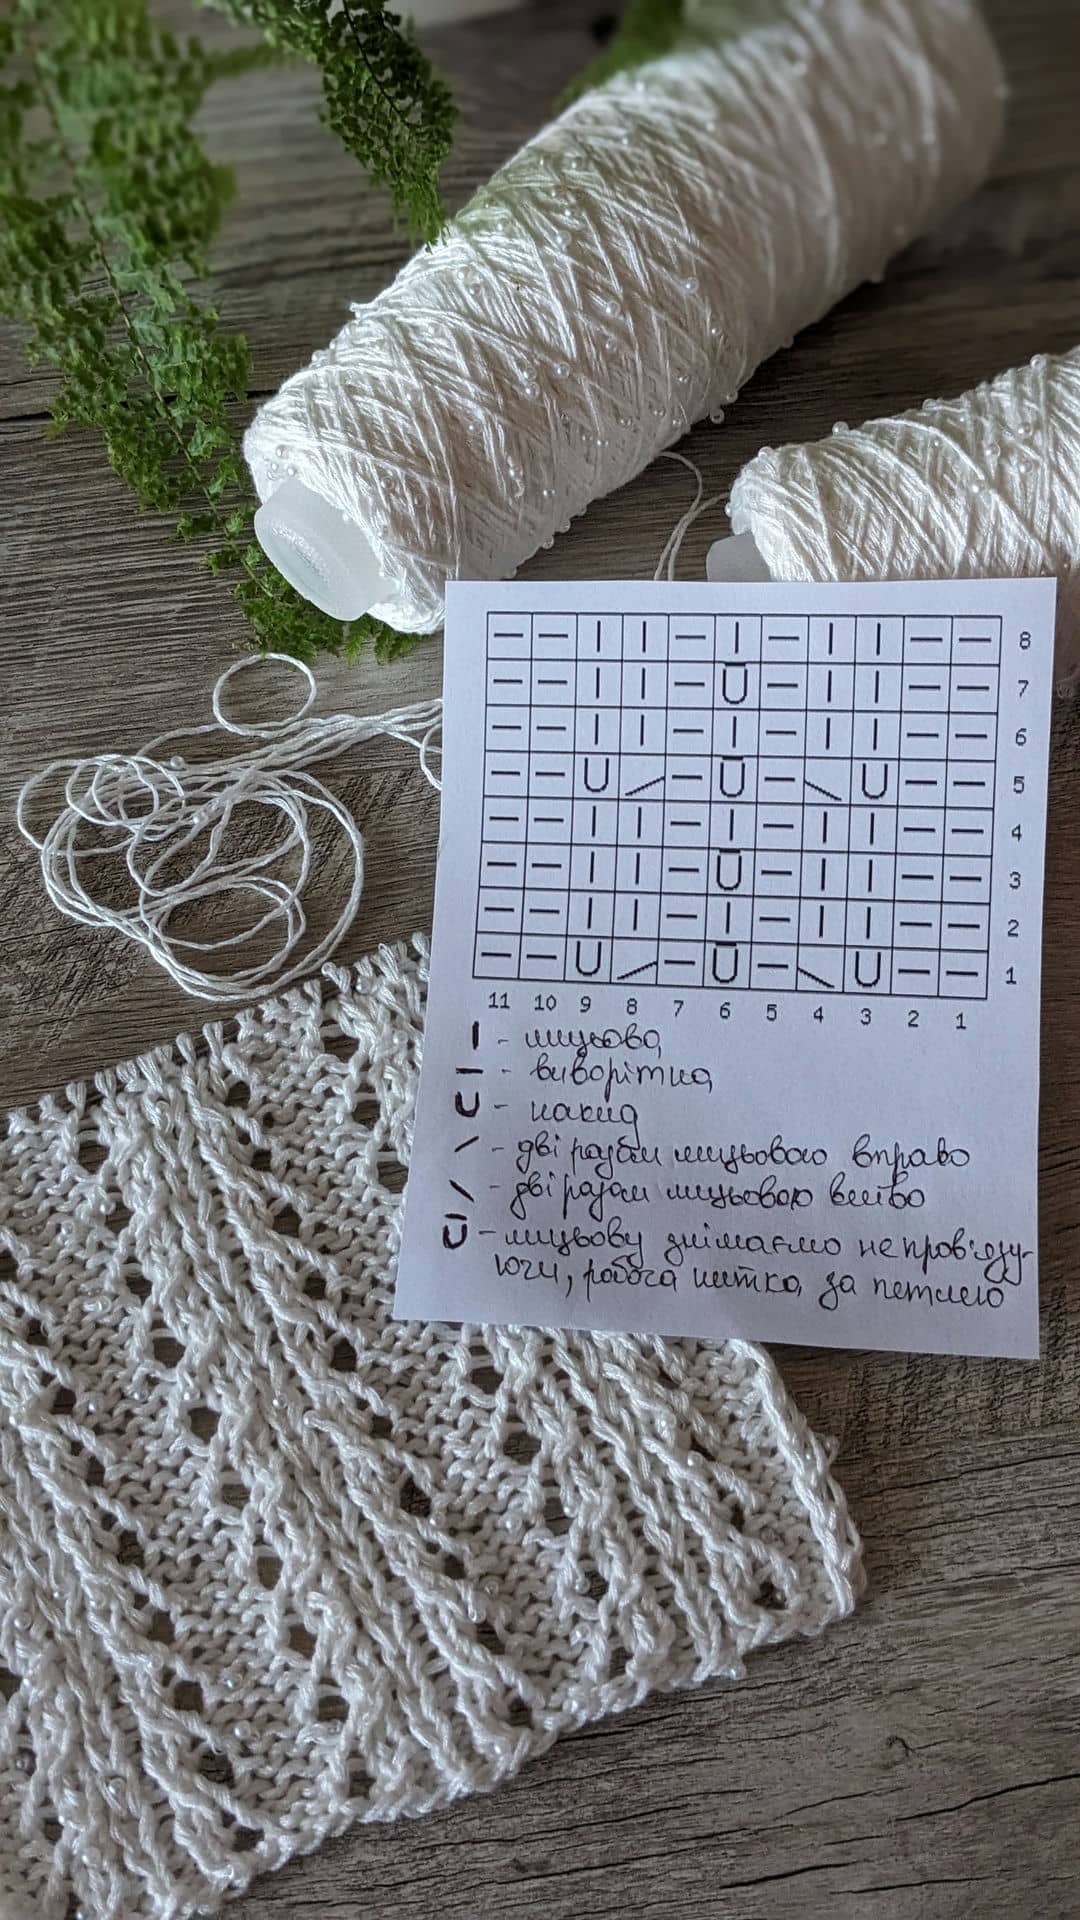 — — | | — | — | | — — 8
— — | | — U̅ — | | — — 7
— — | | — | — | | — — 6
— — U / — U̅ — \ U — — 5
— — | | — | — | | — — 4
— — | | — U̅ — | | — — 3
— — | | — | — | | — — 2
— — U / — U̅ — \ U — — 1
11 10 9 8 7 6 5 4 3 2 1
| - лицьова
— - виворітна
U - накид
/ - дві разом лицьовою вправо
\ - дві разом лицьовою вліво
U̅ - лицьову знімаємо не пров'язу-
ючи, робоча нитка за петлею